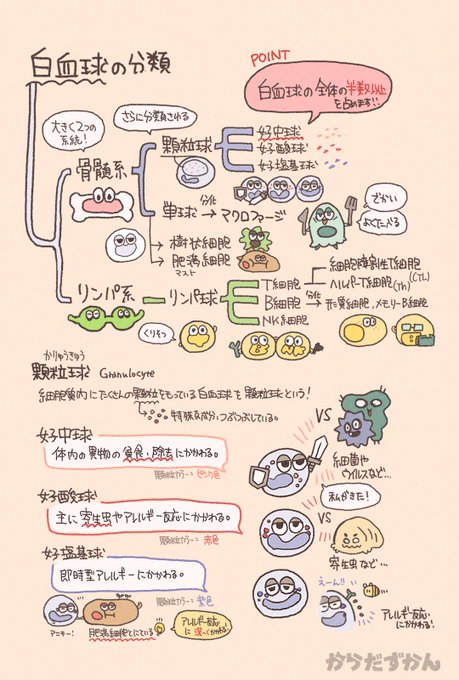 白血球の分類
POINT
白血球の全体の半数以上
を占めます!!
大きく2つの
系統!
さらに分類される
骨髄系
顆粒球
好中球
好酸球
好塩基球
単球
分化
マクロファージ
でかい
よくたべる
樹状細胞
肥満細胞
マスト
リンパ系
リンパ球
T細胞
細胞障害性T細胞
(CTL)
ヘルパーT細胞(Th)
B細胞
分化
形質細胞,メモリーB細胞
NK細胞
くりそつ
かりゅうきゅう
顆粒球 Granulocyte
細胞質内にたくさんの顆粒をもっている白血球を顆粒球という!
特殊な成分。つぶつぶしている。
好中球
体内の異物の貪食・除去にかかわる。
顆粒カラー:ピンク色
VS
細菌や
ウイルスなど...
好酸球
主に寄生虫やアレルギー反応にかかわる。
顆粒カラー:赤色
私がきた!
VS
寄生虫など...
好塩基球
即時型アレルギーにかかわる。
顆粒カラー:紫色
アニキー!
肥満細胞とにている
アレルギー反応
に深〜くかかわる!
えーん!!
アレルギー反応
にかかわる!
からだずかん